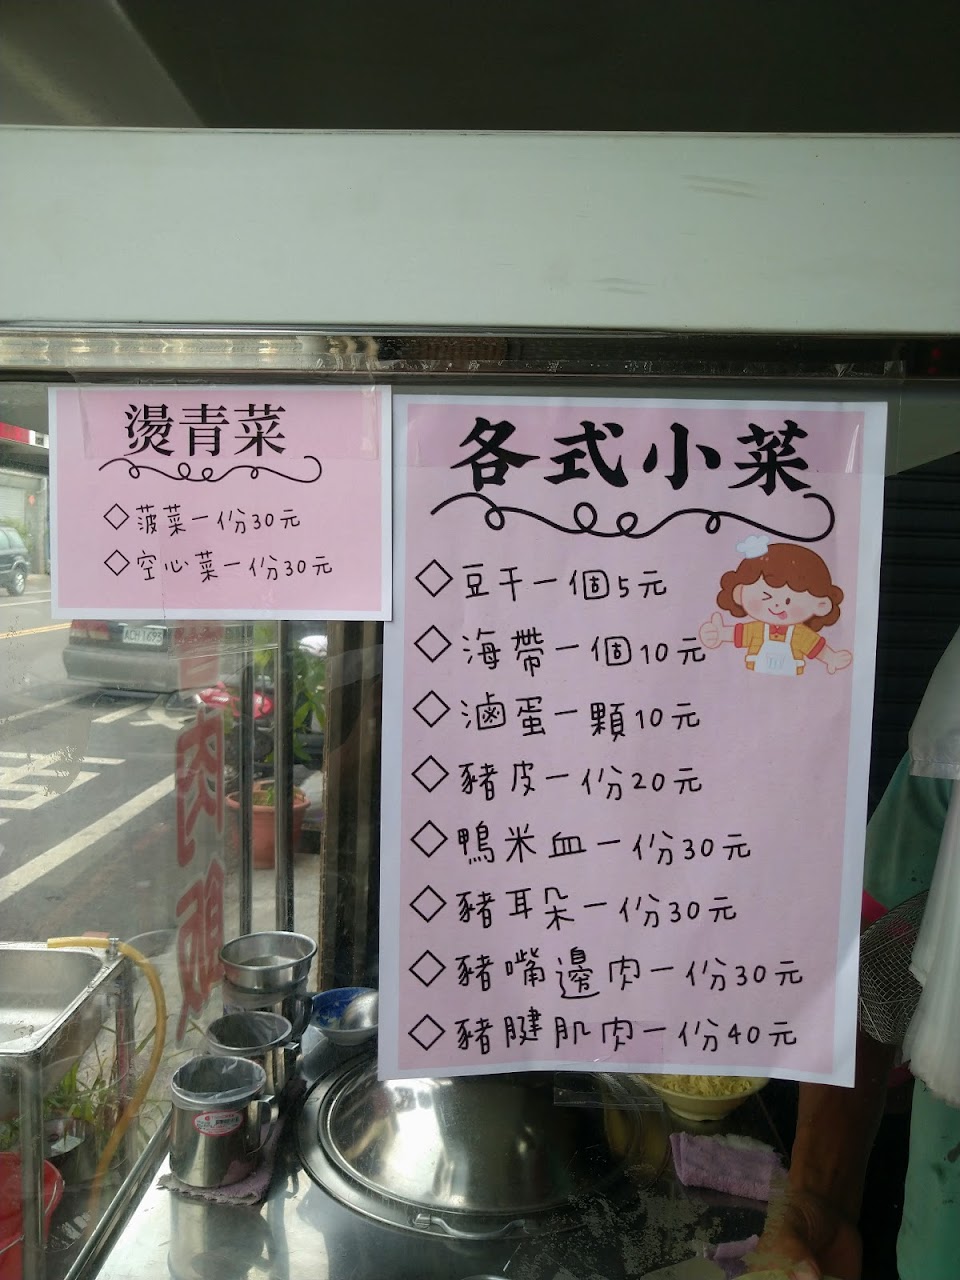 燙青菜
◇菠菜一份30元
◇空心菜一份30元
各式小菜
◇豆干一個5元
◇海帶一個10元
◇滷蛋一顆10元
◇豬皮一份20元
◇鴨米血一份30元
◇豬耳朵一份30元
◇豬嘴邊肉一份30元
◇豬腱肌肉一份40元
ACH 1693
肉飯